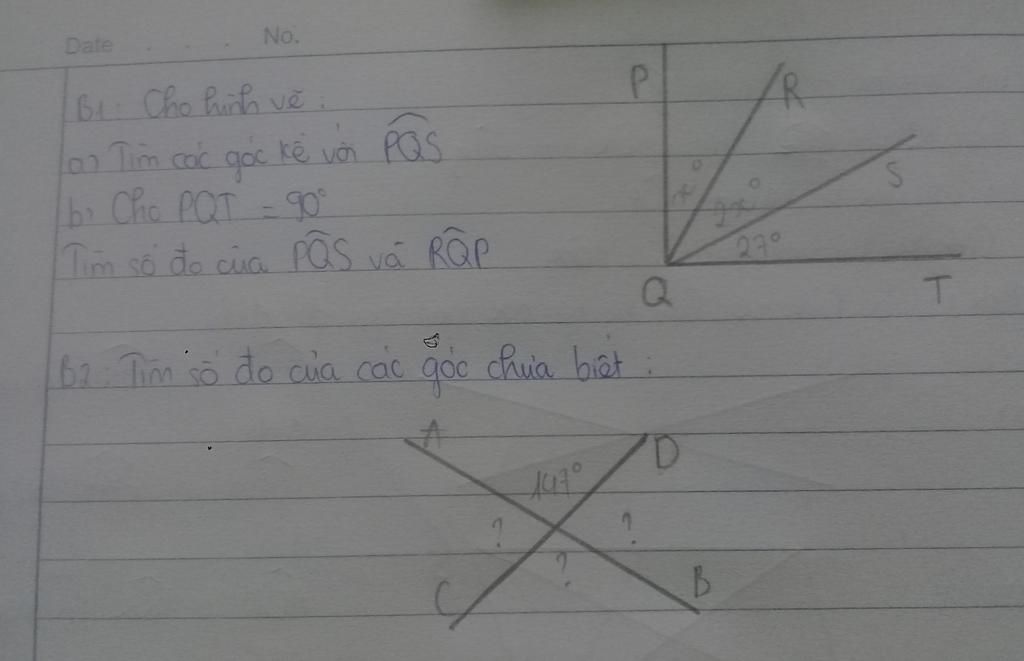 Date . . . No.
B1: Cho hình vẽ:
a) Tìm các góc kề với PQS
b) Cho PQT = 90°
Tìm số đo của PQS và RQP
P
R
x°
S
2x°
27°
Q
T
B2: Tìm số đo của các góc chưa biết:
A
D
147°
?
?
?
C
B